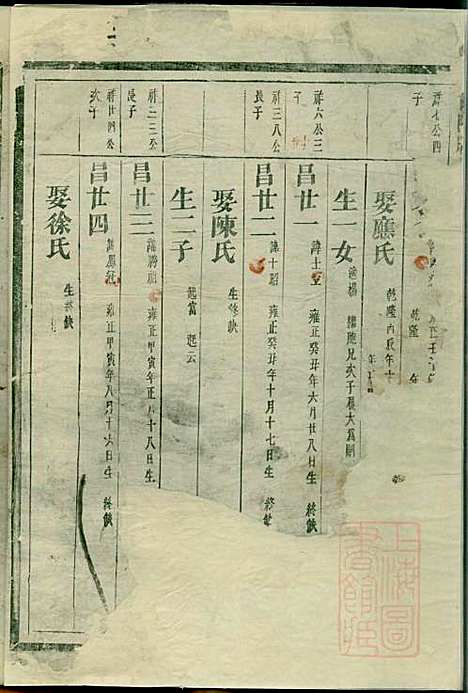 祥七公四
子
娶應氏
乾隆丙辰年十
生一女
適楊
繼胞兄次子起大為嗣
祥六公三
子
昌廿一
諱士
雍正癸丑年六月廿八日生
終缺
祥三八公
長子
昌廿二
諱十昭
雍正癸丑年十月十七日生
終缺
娶陳氏
生終缺
生二子
起富
起云
祥三三公
長子
昌廿三
雍正甲寅年正月十八日生
祥廿四公
次子
昌廿四
雍正甲寅年八月十六日生
終缺
娶徐氏
生終缺
上海圖書館藏